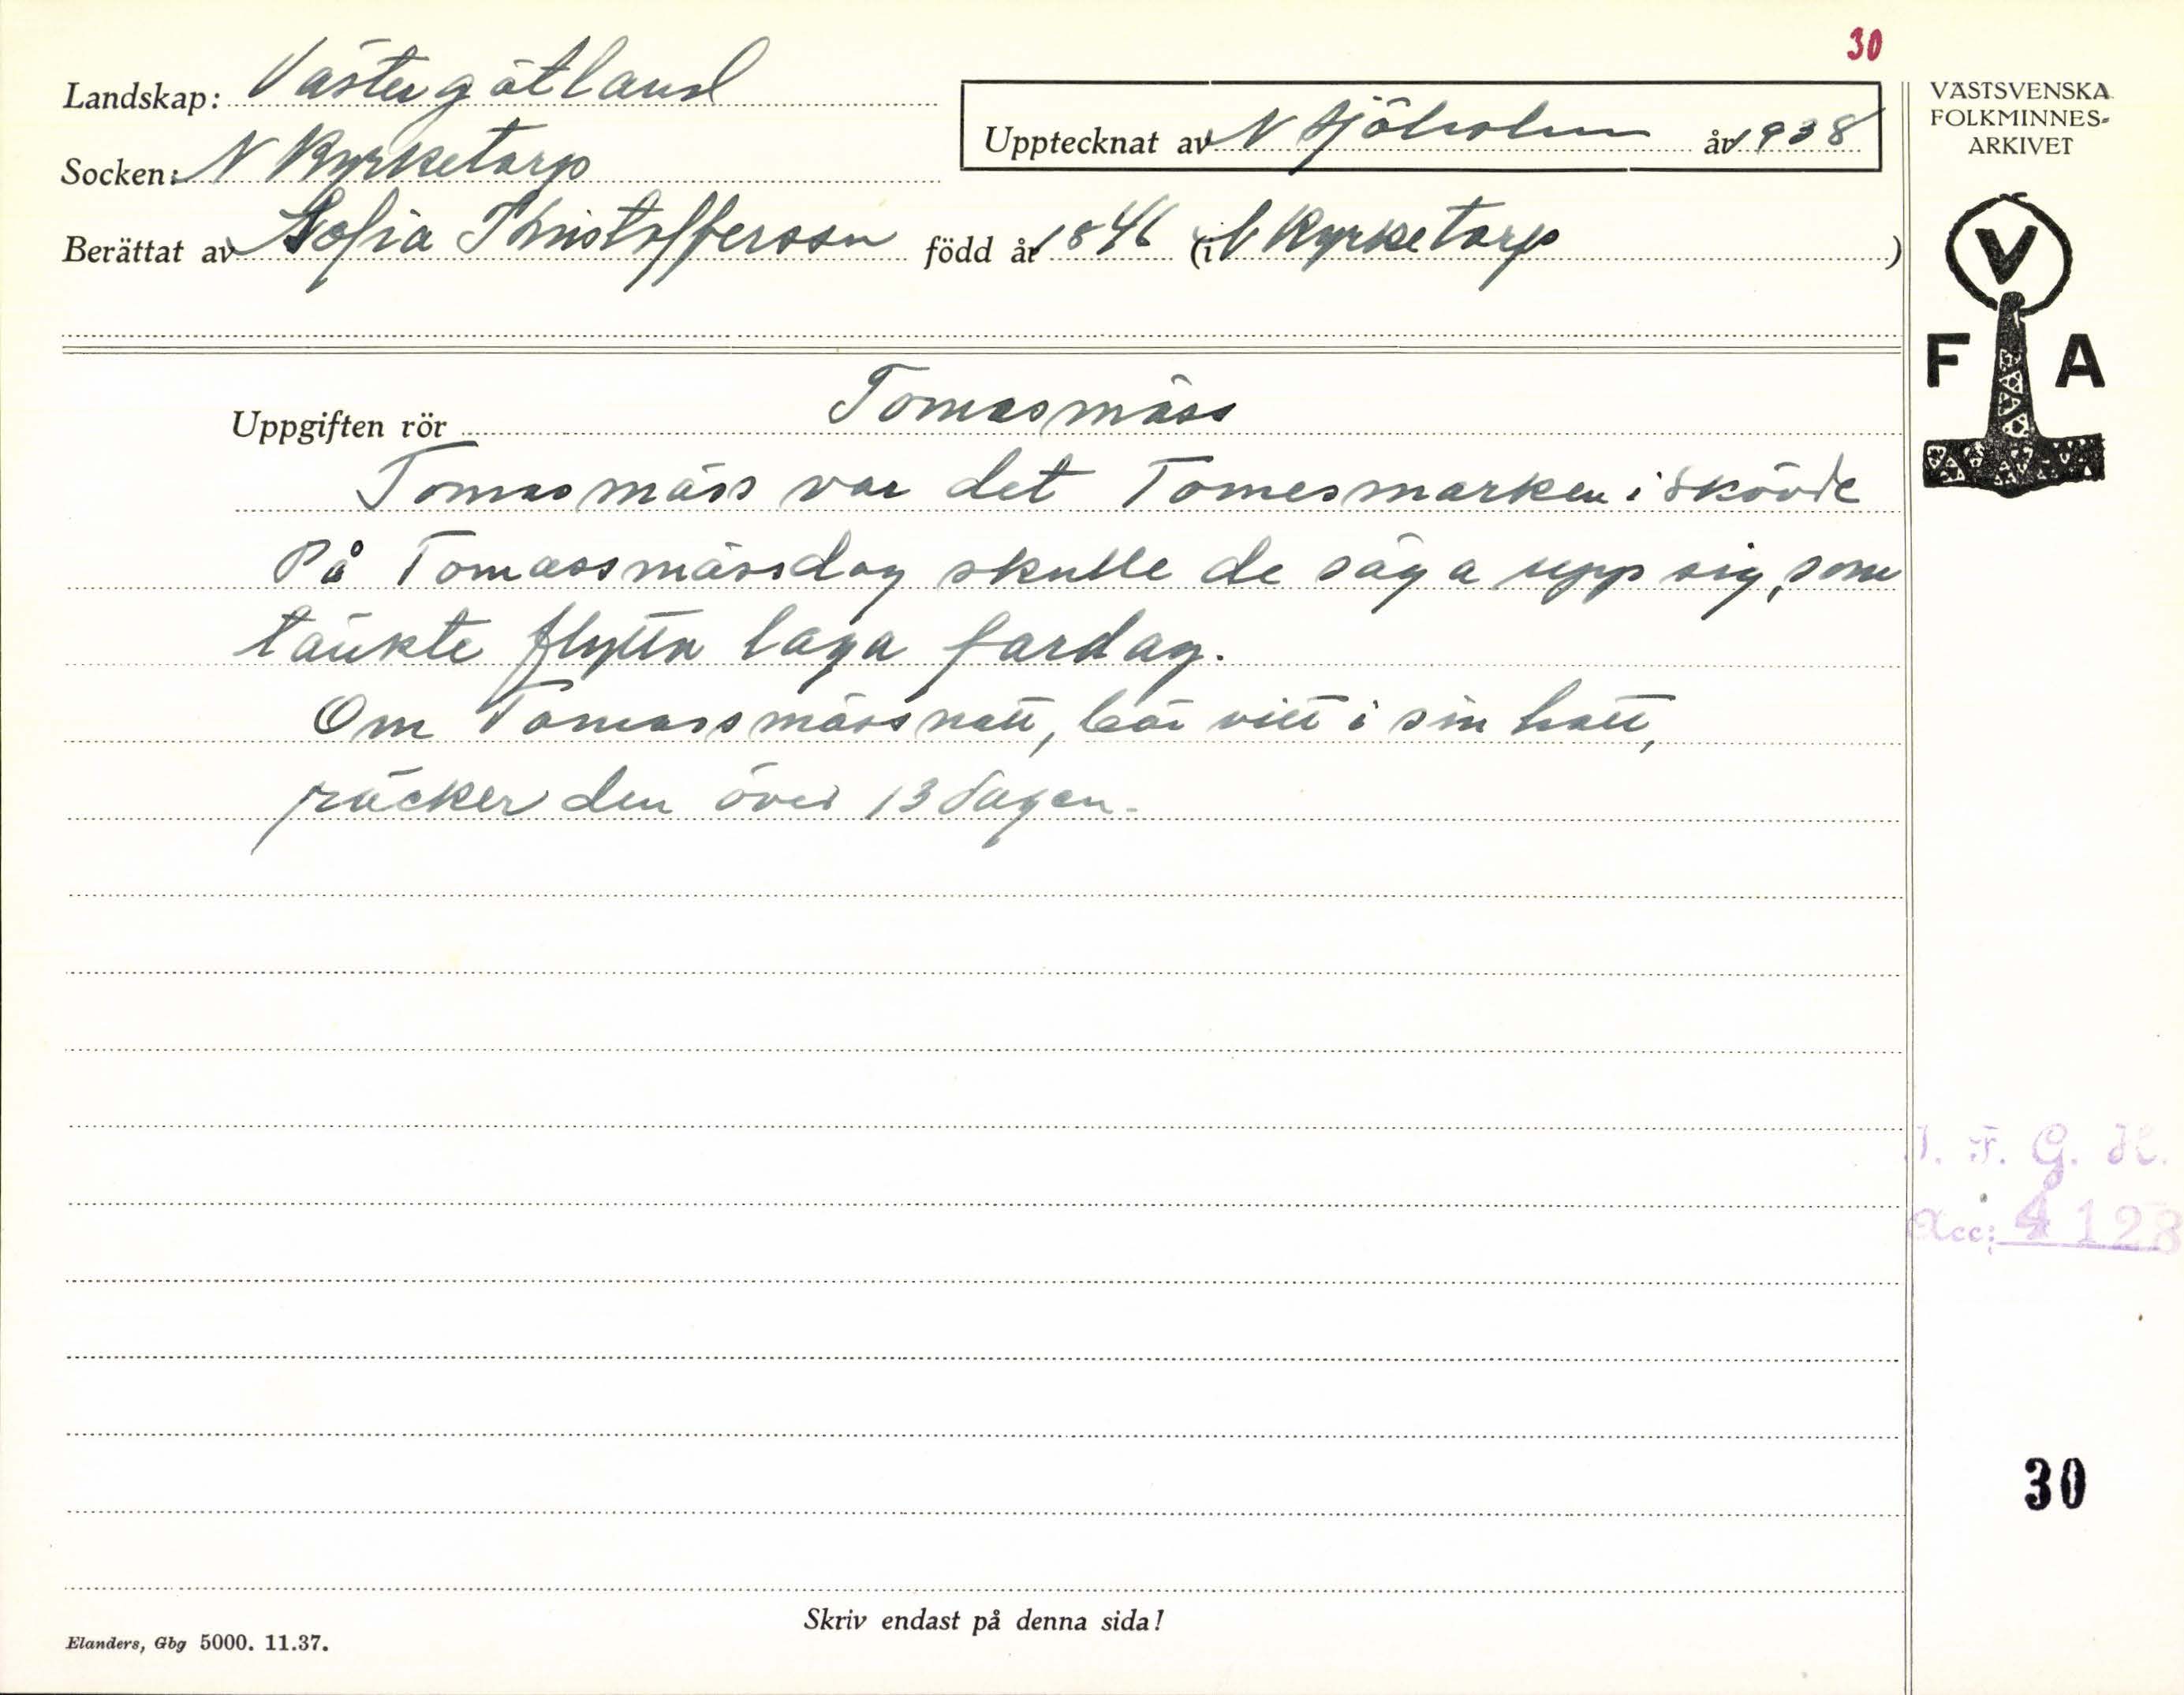 30
Landskap: Västergötland
Upptecknat av N Sjöholm år 1938
Socken: N Kyrketorp
Berättat av Sofia Christoffersson född år 1846 (i N Kyrketorp)
VÄSTSVENSKA
FOLKMINNES-
ARKIVET
V
F A
Uppgiften rör Tomasmäss
Tomasmäss var det Tomesmarken i Skövde
På Tomassmässdag skulle de säga upp sig, som
tänkte flytta laga fardag.
Om Tomassmässnatt, bär vitt i sin hatt,
räcker den över 13dagen.
I. F. G. H.
Acc: 4128
30
Skriv endast på denna sida!
Elanders, Gbg 5000. 11.37.